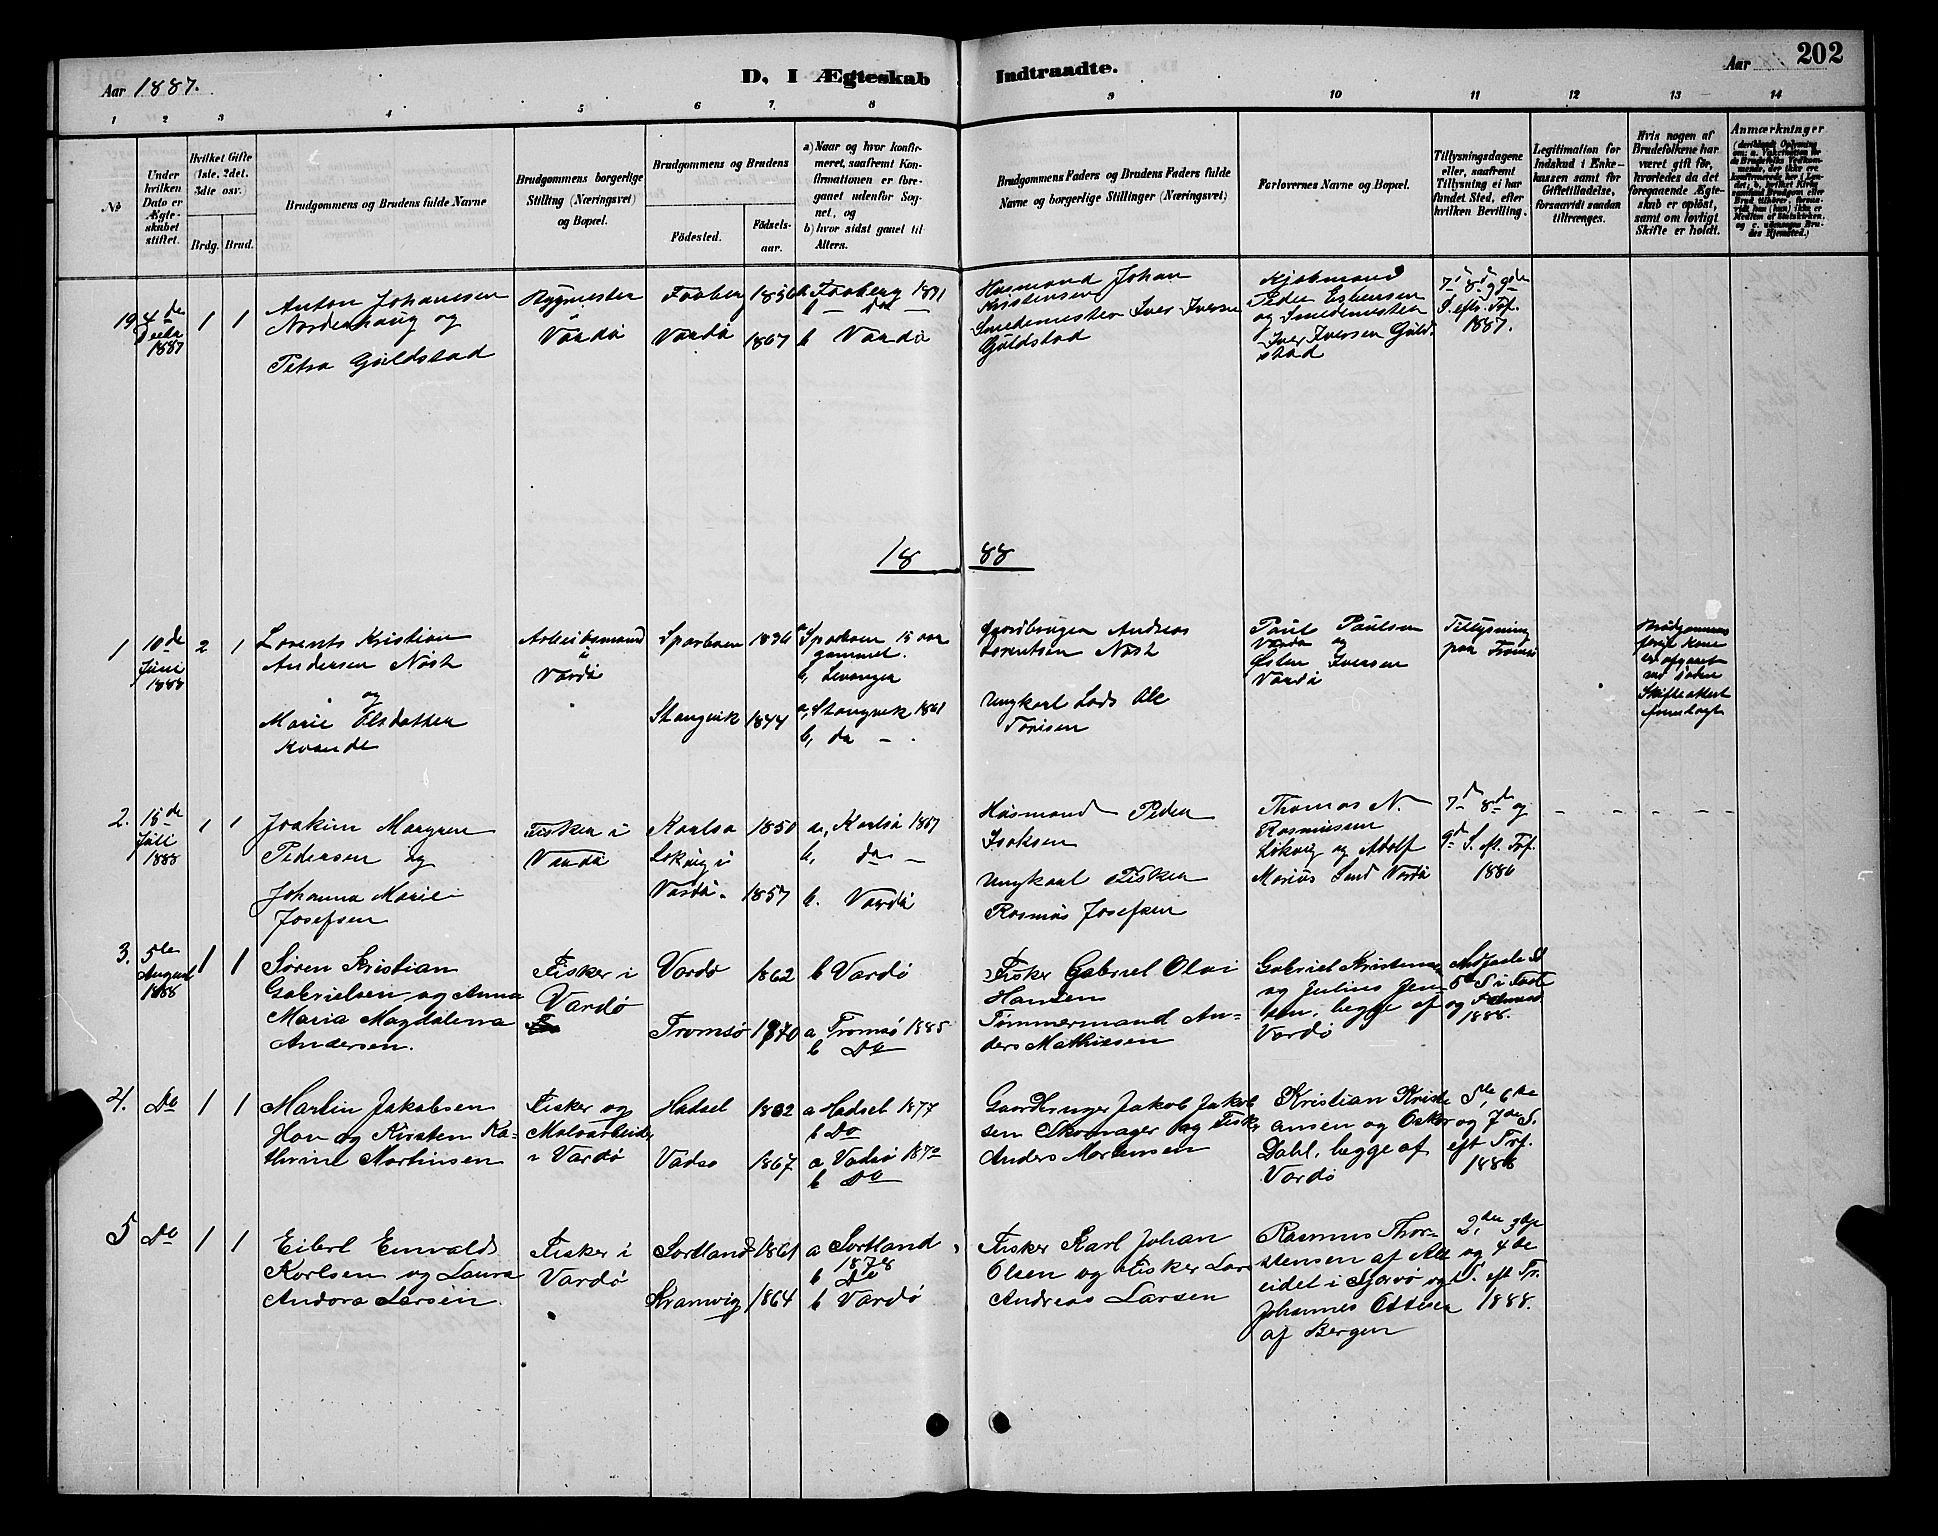 Aar 1887.
D. I Ægteskab
Indtraadte.
Aar
202
1 2 3 4 5 6 7. 8
9 10 11 12 13 14
No
Under hvilken Dato er Ægteskabet stiftet.
Hvilket Gifte (1ste, 2det, 3die osv.)
Brdg. Brud.
Brudgommens og Brudens fulde Navne
Brudgommens borgerlige Stilling (Næringsvei) og Bopæl.
Brudgommens og Brudens
Fødested.
Fødselsaar.
a) Naar og hvor konfirmeret, saafremt Konfirmationen er foregaaet udenfor Sognet, og
b) hvor sidst gaaet til Alters.
Brudgommens Faders og Brudens Faders fulde Navne og borgerlige Stillinger (Næringsvei)
Forlovernes Navne og Bopæl.
Tillysningsdagene eller, saafremt Tillysning ei har fundet Sted, efter hvilken Bevilling.
Legitimation for Indskud i Enkekassen samt for Giftetilladelse, forsaavidt saadan tiltrænges.
Hvis nogen af Brudefolkene har været gift før, hvorledes da det foregaaende Ægteskab er opløst, samt om lovligt Skifte er holdt.
Anmærkninger
19
4de
1887
1 1
Anton Johanesen
Nordenhaug og
Petra Guldstad
Bygmester
Vardö
Faaberg 1856
Vardö 1867
a Faaberg 1871
b — do —
b Vardö
Husmand Johan
Kristensen
Smedemester Iver Iversen
Guldstad
Kjøbmand
Peder Esbensen
og Smedemester
Iver Iversen Guldstad
7de 8de og 9de
S. efter Trf.
1887.
18 88
1
10de
Juni
1888
2 1
Lorents Kristian
Andersen Nöst
og
Marie Olsdatter
Kvande
Arbeidsmand
i
Vardö
Sparboen 1836
Stangvik 1844
a Sparboen 15 aar
gammel.
b, Levanger
a, Stangvik 1861
b, do — .
Jordbruger Andreas
Lorentsen Nöst
Ungkarl Lods Ole
Toresen
Paul Paulsen
Vardö og
Østen Iversen
Vardö
Tillysning
paa Tromsö
Brudgommens
forige Kone
er afgaaet
ved döden
Skifteattest
fremlagt
2.
15de
Juli
1888
1 1
Joakim Margren
Pedersen og
Johanna Marie
Josefsen
Fisker i
Vardö
Karlsö 1850
Lökvig i
Vardö. 1857
a, Karlsö 1867
b, do —
b. Vardö
Husmand Peder
Isaksen
Ungkarl Fisker
Rasmus Josefsen
Thomas N.
Rasmussen
Lökvig og Adolf
Marius Lund Vardö
7de 8de og
9de S. ef. Trf.
1886
3.
5te
August
1888
1 1
Søren Kristian
Gabrielsen og Anna
Maria Magdalena
Andersen.
Fisker i
Vardø
Vardø 1862
Tromsø 1870
b Vardø
a Tromsø 1885
b Do
Fisker Gabriel Olai
Hansen
Tømmermand Anders Mathiesen
Gabriel Kristensen
og Julius Jensen, begge af
Vardø
5te S i Faste
1888.
4.
Do
1 1
Martin Jakobsen
Hov og Kirsten Kathrine Martinsen
Fisker og
Malerarbeider
i Vardø
Hadsel 1862
Vadsø 1867
a Hadsel 1877
b Do
a Vadsø
b Do
Gaardbruger Jakob Jakobsen Skomager og Fisker
Anders Mortensen
Kristian Kristiansen og Oskar
Dahl, begge af
Vardø
5te, 6te
og 7de S.
eft Trf.
1888
5
Do
1 1
Eilert Envald
Karlsen og Laura
Andora Larsen.
Fisker i
Vardø
Sortland 1861
Kramvig 1864
a Sortland
1878
b Do
b Vardø
Fisker Karl Johan
Olsen og Fisker Lars
Andreas Larsen
Rasmus Thorstensen af Alteidet i Skjervø og
Johannes Ottesen
af Bergen
2den, 3die
og 4de
S. eft Tr.
1888.